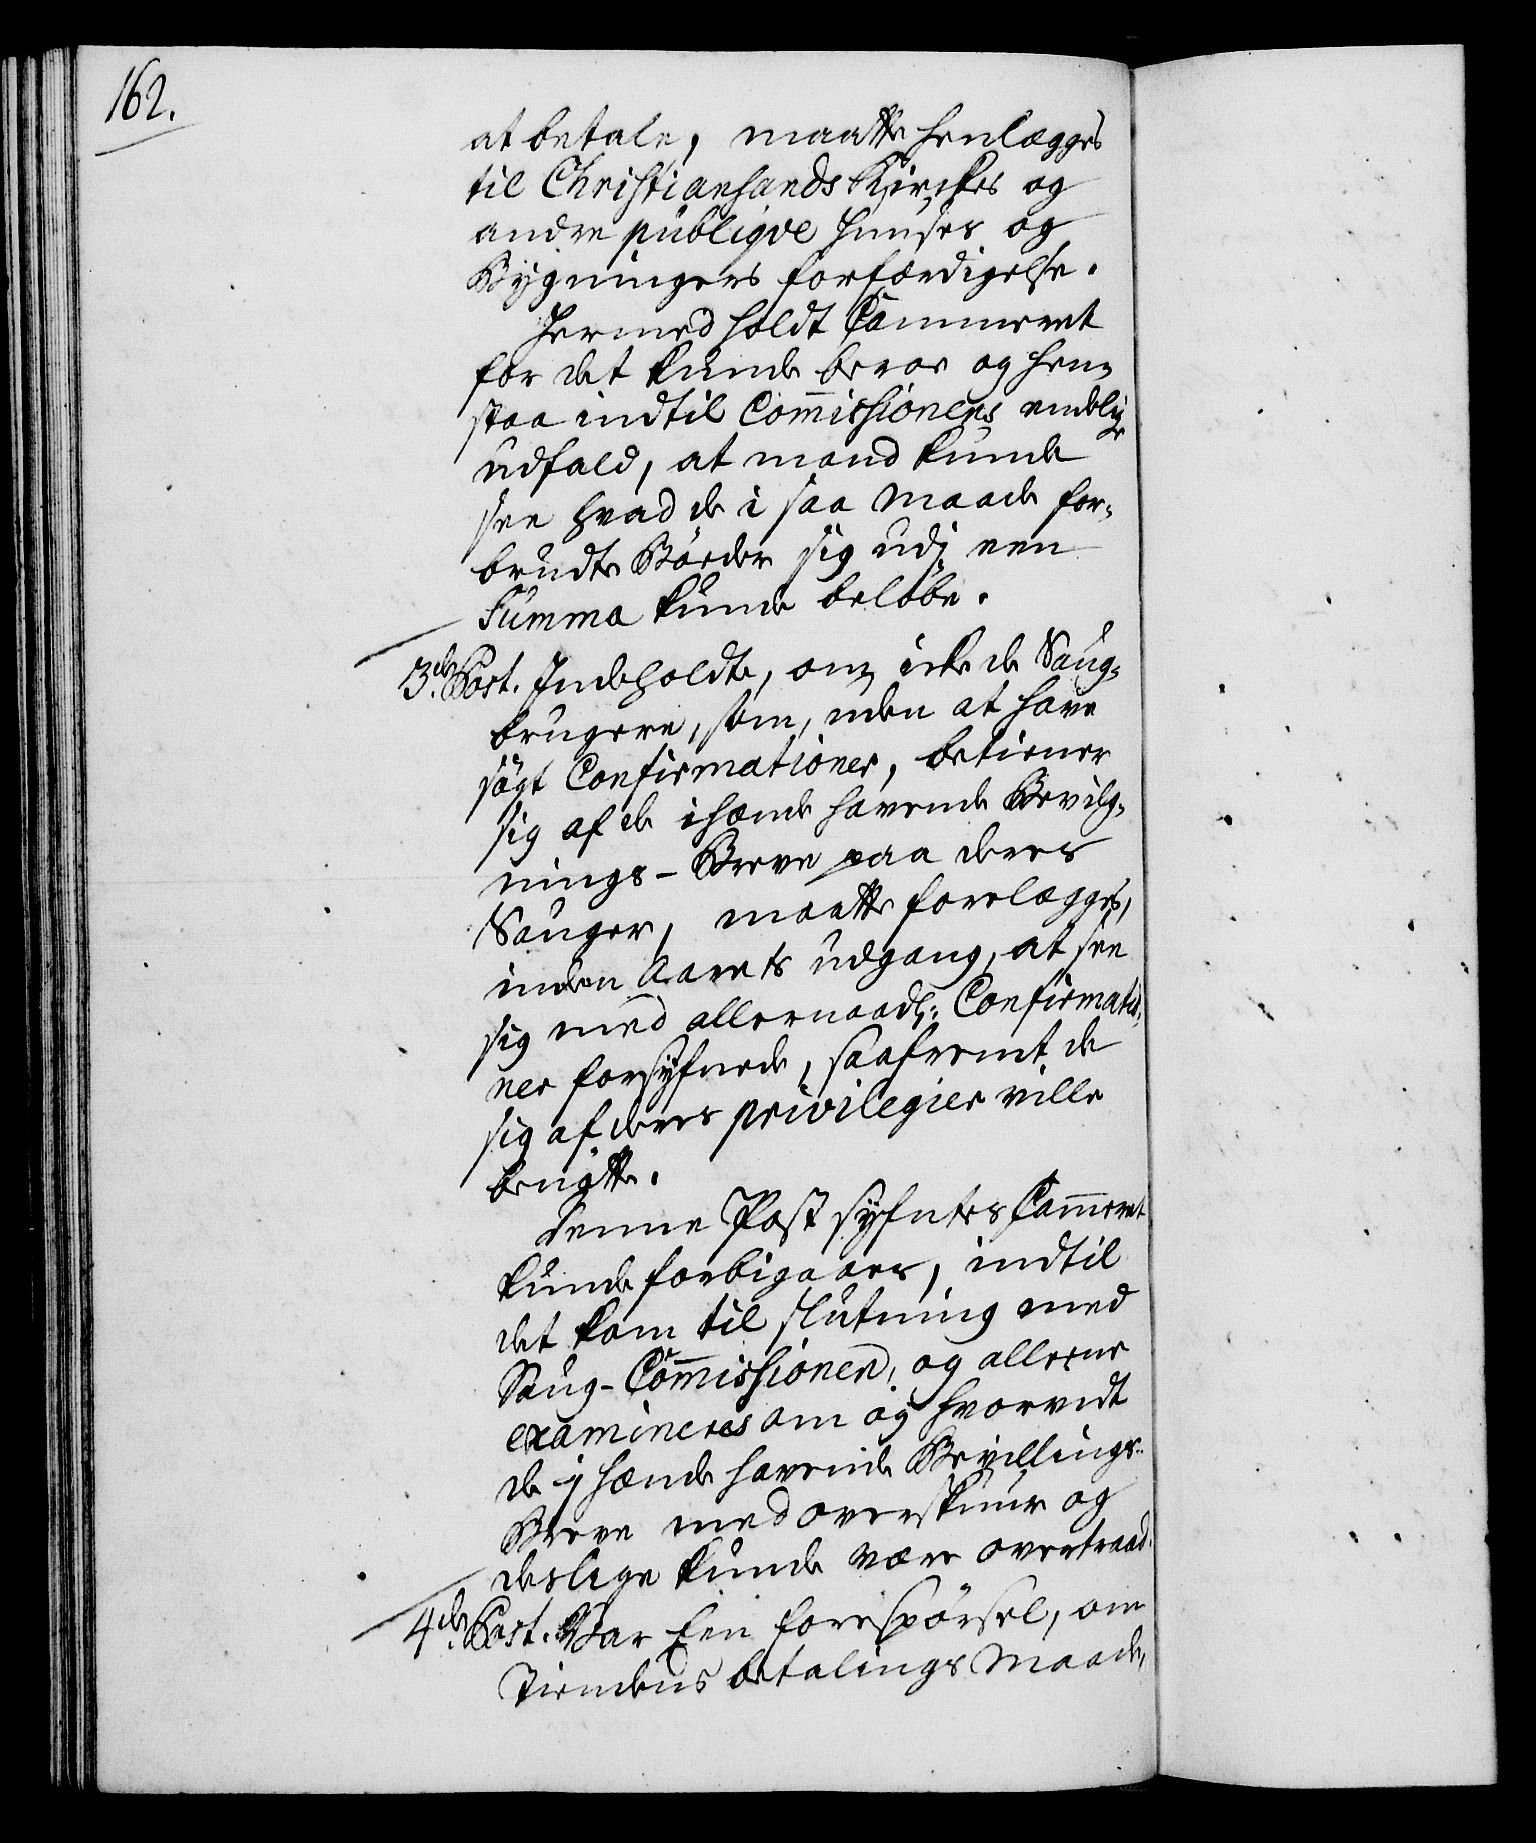 162.
at betale, maatte henlægges
til Christiansands Kirckes og
andre publiqve Huuses og
Bygningers forfærdigelse.
Hermed holdt Cammeret
for det kunde beroe og hen-
staa indtil Commissionens endelige
udfald, at mand kunde
see hvad de i saa maade for-
brudte Bøder sig udj een
Summa kunde beløbe.
3de Post. Indeholdte, om icke de Saug-
brugere, som, uden at have
søgt Confirmationer, betiener
sig af de ihænde havende Bevilg-
nings-Breve paa deres
Sauger, maatte forelægges,
inden Aarets udgang, at see
sig med allernaadl: Confirmatio-
ner forsÿfnede, saafremt de
sig af deres privilegier ville
benÿtte.
Denne Post sÿfntes Cammeret
kunde forbigaaes, indtil
det kom til slutning med
Saug-Commissionen, og allerne
examineres om og hvorvidt
de j hænde havende Bevillings-
Breve med overskuur og
deslige kunde være overtraad.
4de Post. Var Een forespørsel, om
Tiendens betalings Maade,